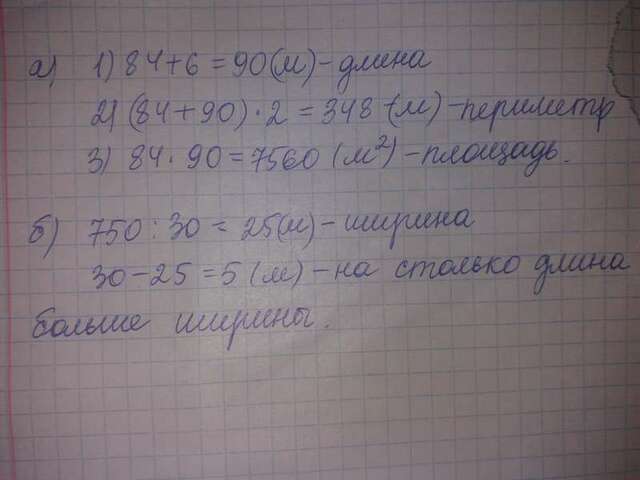 а) 1) 84+6=90(м)-длина
2) (84+90)·2=348(м)-периметр
3) 84·90=7560(м²)-площадь.
б) 750:30=25(м)-ширина
30-25=5(м)-на столько длина
больше ширины.